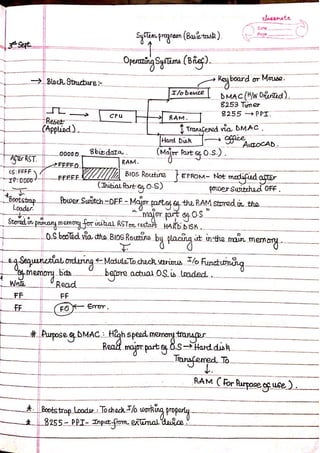 classmate
Date
Page
3rd Sept
System program (Basic task).
Operating Systems (Brief).
→ Block Structure:-
Keyboard or Mouse.
I/o Device
DMAC (H/w Oriented).
8253 Timer
8255 → PPI.
CPU
RAM.
Reset
(Applied).
Transferred via DMAC.
Hard Disk
office
AUTOCAD.
00000
8 bit data.
(Major Part of O.S.).
After RST.
RAM.
FFFF0
CS: FFFF
IP: 0000
FFFFF
BIOS Routine
EPROM- Not modified after
power switched OFF.
(Initial Part of O.S)
Bootstrap
Loader.
Power Switch - OFF - Major part of the RAM stored in the
"major part of OS"
Stored in primary memory for initial RST or restart
HARD DISK.
O.S booted via the BIOS Routine by placing it in the main memory.
e.g Sequencial ordering ← Module To check various I/o Functioning
of memory bits
before actual O.S is loaded.
Write
Read
FF
FF
FF
F0
Error.
# Purpose of DMAC : High speed memory transfer
Read major part of O.S → Hard disk
Transferred To
RAM (For Purpose of use).
* Bootstrap Loader : To check I/o working properly.
* 8255 - PPI - Input from external device.